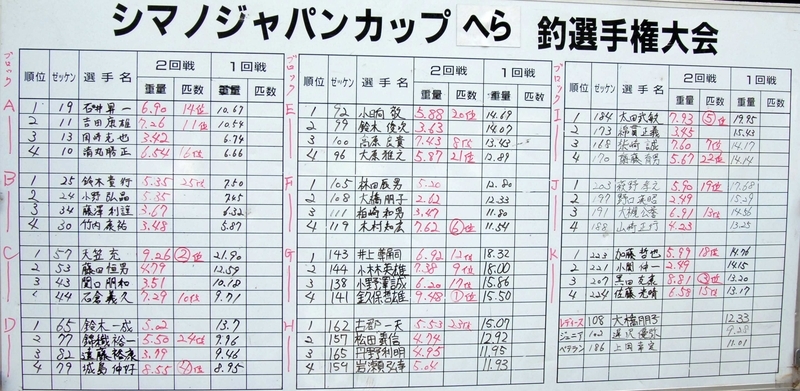 シマノジャパンカップ へら 釣選手権大会
ブロック
順位 ゼッケン 選手名 2回戦 1回戦
重量 匹数 重量 匹数
A
1 19 石井 6.90 14位 10.67
2 11 吉田康雄 7.26 11位 10.54
3 13 岡崎克也 3.42 6.74
4 10 6.54 16位 6.66
B
1 25 鈴木 5.35 25位 7.50
2 24 小野弘晶 5.35 7.45
3 34 藤澤利 3.67 6.32
4 30 竹内 3.48 5.87
C
1 57 天笠充 9.26 ②位 21.90
2 53 藤田恒男 4.79 12.59
3 43 関口朋和 3.51 10.18
4 44 石倉義久 7.29 10位 9.71
D
1 65 鈴木一成 5.02 13.7
2 77 裕一 5.50 24位 9.96
3 82 遠藤 3.79 9.46
4 79 城島 8.55 ④位 8.95
ブロック
順位 ゼッケン 選手名 2回戦 1回戦
重量 匹数 重量 匹数
E
1 92 小日向敬 5.88 20位 14.69
2 99 鈴木俊次 3.63 14.07
3 100 高原 7.43 8位 13.43
4 96 大原雅之 5.87 21位 12.89
F
1 105 林田辰男 5.20 12.80
2 108 大橋朋子 2.62 12.33
3 111 柏崎和男 3.47 11.80
4 119 木村和広 7.62 ⑥位 11.54
G
1 143 井上 6.92 12位 18.32
2 144 小林英雄 7.38 9位 18.00
3 138 小野澤誠 6.20 17位 15.86
4 141 9.48 ①位 15.50
H
1 162 一夫 5.53 23位 15.07
2 157 松田義信 4.74 12.92
3 165 丹野利明 4.95 11.95
4 159 岩瀬弘幸 5.04 11.93
ブロック
順位 ゼッケン 選手名 2回戦 1回戦
重量 匹数 重量 匹数
I
1 184 太田武敏 7.93 ⑤位 19.95
2 173 正義 3.45 15.43
3 168 柴崎誠 7.60 7位 14.17
4 170 5.67 22位 14.14
J
1 203 荻野孝之 5.90 19位 17.68
2 197 野口 2.49 15.29
3 191 大槻 6.91 13位 14.56
4 188 山崎正行 4.23 13.25
K
1 223 加藤哲也 5.99 18位 14.76
2 221 小関伸一 2.49 14.15
3 207 黒田克彦 8.81 ③位 13.20
4 224 佐藤光晴 6.58 15位 13.17
レディース 108 大橋朋子 12.33
ジュニア 102 9.38
ベテラン 186 上岡 11.01